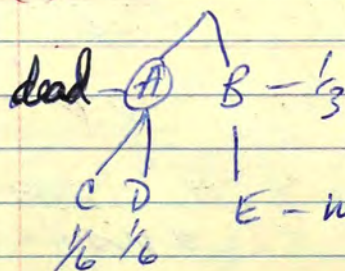 dead - A B - 1/3
C D E -
1/6 1/6